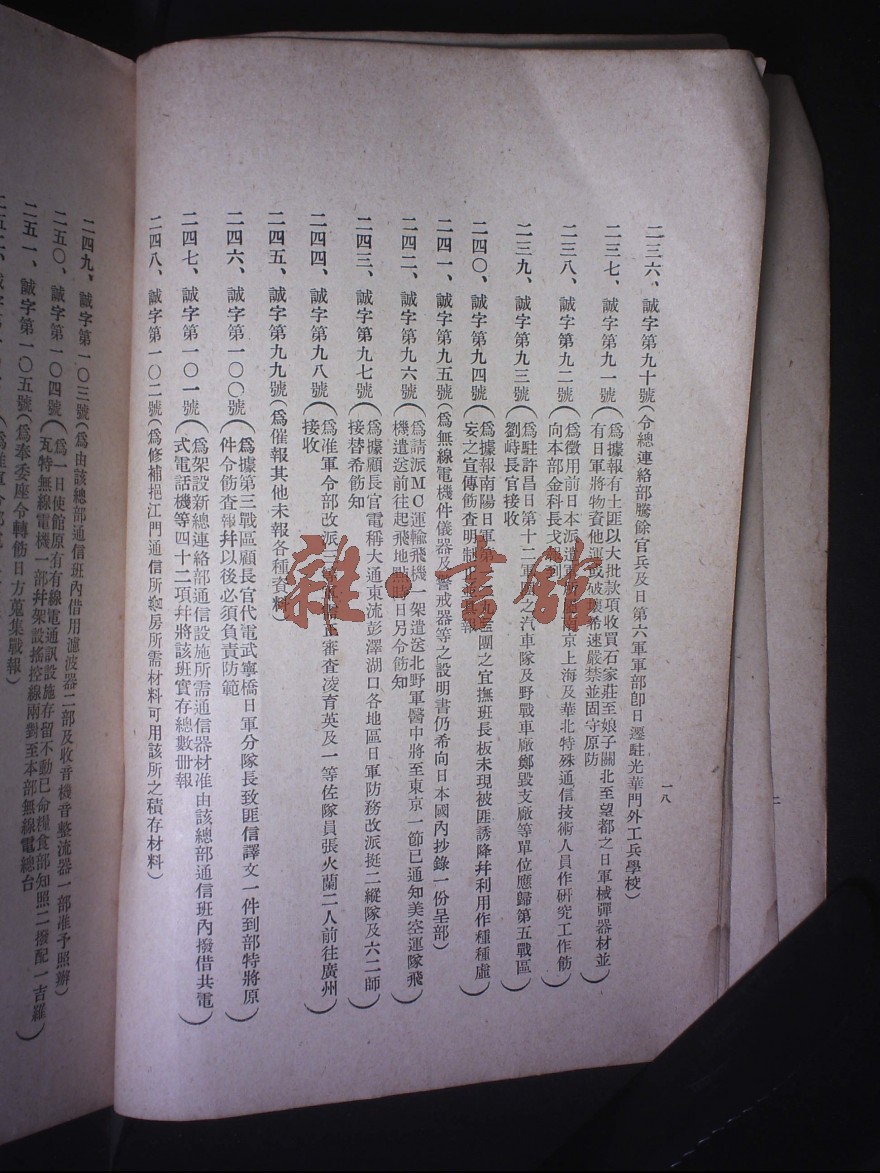 二三六、誠字第九十號(令總連絡部騰餘官兵及日第六軍軍部卽日遷駐光華門外工兵學校)
二三七、誠字第九一號(爲據報有土匪以大批款項收買石家莊至娘子關北至望都之日軍械彈器材並
有日軍將物資他運或破壞希速嚴禁並固守原防)
二三八、誠字第九二號(爲徵用前日本派遣軍 京上海及華北特殊通信技術人員作硏究工作飭
向本部金科長戈 )
二三九、誠字第九三號(爲駐許昌日第十二軍團之汽車隊及野戰車廠鄭毀支廠等單位應歸第五戰區
劉峙長官接收)
二四〇、誠字第九四號(爲據報南陽日軍第 團之宜撫班長板未現被匪誘降幷利用作種種虛
妄之宣傳飭査明制止 報)
二四一、誠字第九五號(爲無線電機件儀器及警戒器等之設明書仍希向日本國內抄錄一份呈部)
二四二、誠字第九六號(爲請派MC運輸飛機一架遣送北野軍醫中將至東京一節已通知美空運隊飛
機遣送前往起飛地點時日另令飭知)
二四三、誠字第九七號(爲據顧長官電稱大通東流彭澤湖口各地區日軍防務改派挺二縱隊及六二師
接替希飭知)
二四四、誠字第九八號(爲准軍令部改派 審査凌育英及一等佐隊員張火蘭二人前往廣州
接收)
二四五、誠字第九九號(爲催報其他未報各種資料)
二四六、誠字第一〇〇號(爲據第三戰區顧長官代電武寧橋日軍分隊長致匪信譯文一件到部特將原
件令飭査報幷以後必須負責防範)
二四七、誠字第一〇一號(爲架設新總連絡部通信設施所需通信器材准由該總部通信班內撥借共電
式電話機等四十二項幷將該班實存總數册報)
二四八、誠字第一〇二號(爲修補挹江門通信所 房所需材料可用該所之積存材料)
一八
二四九、誠字第一〇三號(爲由該總部通信班內借用濾波器二部及收音機音整流器一部准予照辦)
二五〇、誠字第一〇四號(爲一日使館原有有線電通訊設施存留不動已命糧食部知照二撥配一吉羅
瓦特無線電機一部幷架設搖控線兩對至本部無線電總台)
二五一、誠字第一〇五號(爲奉委座令轉飭日方蒐集戰報)
雜·書館